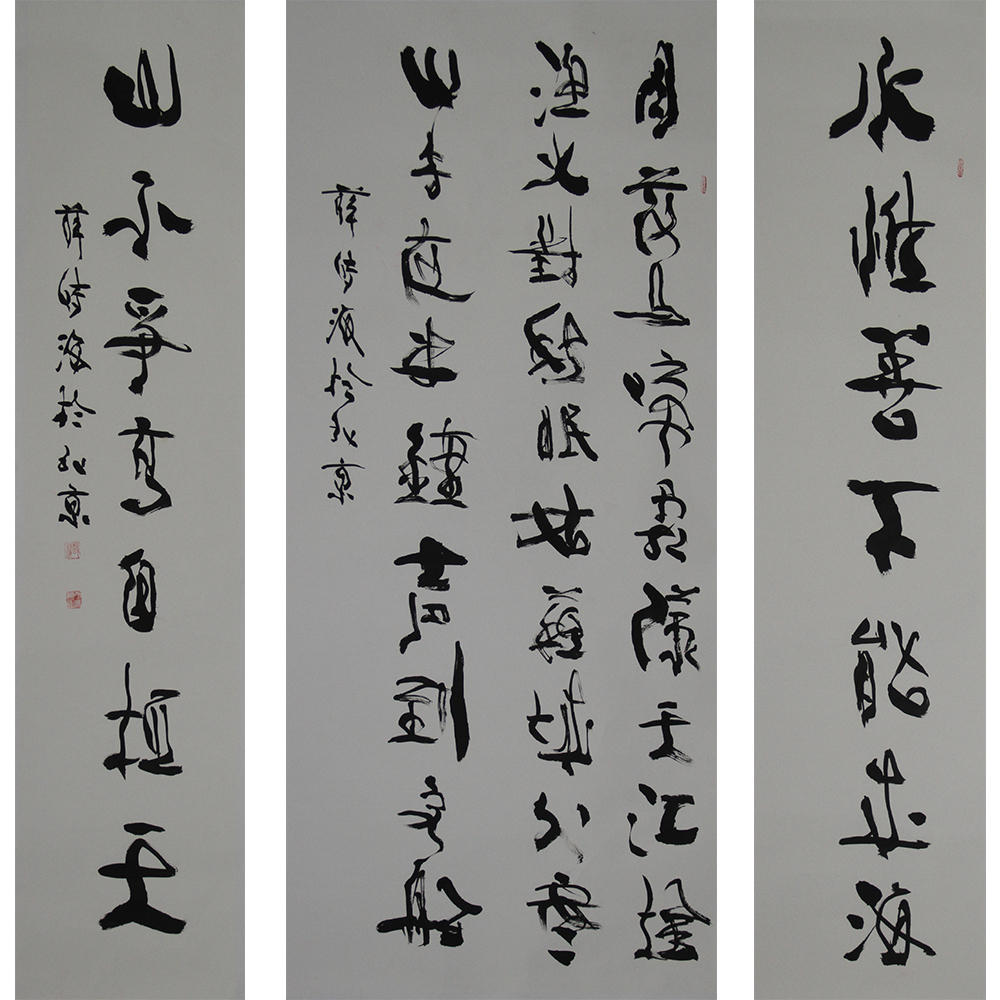 水惟善下能成海
月落烏啼霜滿天江楓
漁火對愁眠姑蘇城外寒
山寺夜半鐘聲到客船
薛海於北京
山不爭高自極天
薛海於北京